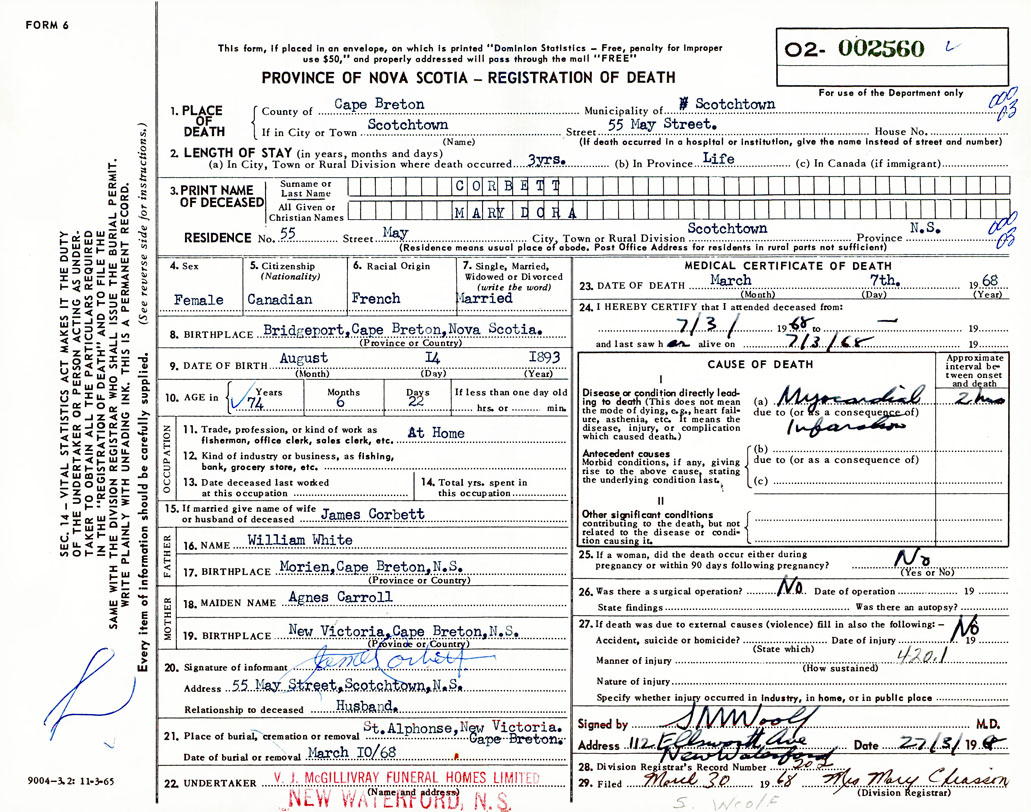 FORM 6
This form, if placed in an envelope, on which is printed "Dominion Statistics – Free, penalty for improper
use $50," and properly addressed will pass through the mail "FREE"
O2- 002560
PROVINCE OF NOVA SCOTIA – REGISTRATION OF DEATH
For use of the Department only
1. PLACE OF DEATH
County of Cape Breton Municipality of Scotchtown
If in City or Town Scotchtown Street 55 May Street. House No.
(Name) (If death occurred in a hospital or institution, give the name instead of street and number)
2. LENGTH OF STAY (in years, months and days)
(a) In City, Town or Rural Division where death occurred 3yrs. (b) In Province Life (c) In Canada (if immigrant)
3. PRINT NAME OF DECEASED
Surname or Last Name CORBETT
All Given or Christian Names MARY DORA
RESIDENCE No. 55 Street May City, Town or Rural Division Scotchtown Province N.S.
(Residence means usual place of abode. Post Office Address for residents in rural parts not sufficient)
4. Sex
Female
5. Citizenship
(Nationality)
Canadian
6. Racial Origin
French
7. Single, Married,
Widowed or Divorced
(write the word)
Married
8. BIRTHPLACE Bridgeport,Cape Breton,Nova Scotia.
(Province or Country)
9. DATE OF BIRTH August I4 I893
(Month) (Day) (Year)
10. AGE in Years 74 Months 6 Days 22 If less than one day old
hrs. or min.
OCCUPATION
11. Trade, profession, or kind of work as
fisherman, office clerk, sales clerk, etc. At Home
12. Kind of industry or business, as fishing,
bank, grocery store, etc.
13. Date deceased last worked
at this occupation
14. Total yrs. spent in
this occupation
15. If married give name of wife
or husband of deceased James Corbett
FATHER
16. NAME William White
17. BIRTHPLACE Morien,Cape Breton,N.S.
(Province or Country)
MOTHER
18. MAIDEN NAME Agnes Carroll
19. BIRTHPLACE New Victoria,Cape Breton,N.S.
(Province or Country)
20. Signature of informant James Corbett
Address 55 May Street,Scotchtown,N.S.
Relationship to deceased Husband.
21. Place of burial, cremation or removal St.Alphonse,New Victoria.
Cape Breton.
Date of burial or removal March IO/68
22. UNDERTAKER V. J. McGILLIVRAY FUNERAL HOMES LIMITED
(Name and address)
NEW WATERFORD, N. S.
MEDICAL CERTIFICATE OF DEATH
23. DATE OF DEATH March 7th. 1968
(Month) (Day) (Year)
24. I HEREBY CERTIFY that I attended deceased from:
7/3/ 1968 to — 19
and last saw her alive on 7/3/68 19
CAUSE OF DEATH
Approximate
interval be-
tween onset
and death
I
Disease or condition directly lead-
ing to death (This does not mean
the mode of dying, e.g., heart fail-
ure, asthenia, etc. It means the
disease, injury, or complication
which caused death.)
(a) Myocardial 2 hrs
due to (or as a consequence of)
Infarction
Antecedent causes
Morbid conditions, if any, giving
rise to the above cause, stating
the underlying condition last.
(b)
due to (or as a consequence of)
(c)
II
Other significant conditions
contributing to the death, but not
related to the disease or condi-
tion causing it.
25. If a woman, did the death occur either during
pregnancy or within 90 days following pregnancy? No
(Yes or No)
26. Was there a surgical operation? No Date of operation 19
State findings Was there an autopsy?
27. If death was due to external causes (violence) fill in also the following: – No
Accident, suicide or homicide? Date of injury 19
(State which)
Manner of injury 420.1
(How sustained)
Nature of injury
Specify whether injury occurred in industry, in home, or in public place
Signed by S M Woolf M.D.
Address 112 Ellsworth Ave Date 27/3/19
New Waterford
28. Division Registrar's Record Number
29. Filed March 30 1968 Mrs Mary Chiasson
(Division Registrar)
S. Woolf
SEC. 14 – VITAL STATISTICS ACT MAKES IT THE DUTY
OF THE UNDERTAKER OR PERSON ACTING AS UNDER-
TAKER TO OBTAIN ALL THE PARTICULARS REQUIRED
IN THE "REGISTRATION OF DEATH" AND TO FILE THE
SAME WITH THE DIVISION REGISTRAR WHO SHALL ISSUE THE BURIAL PERMIT.
WRITE PLAINLY WITH UNFADING INK. THIS IS A PERMANENT RECORD.
Every item of information should be carefully supplied. (See reverse side for instructions.)
9004–3.2: 11-3-65